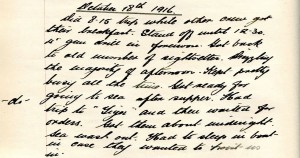 October 18th 1916
Did 8.15 trip while other crew got
their breakfast. Stand off until 12-30.
4" gun drill in forenoon. Got back
to old number of eightletter.
the majority of afternoon. Kept pretty
busy all the time. Got ready for
-do- going to sea after supper. Had
trip to "Lyon" and then waited for
orders. Got them about midnight.
Sea went out. Had to sleep in boat
in case they wanted to
in